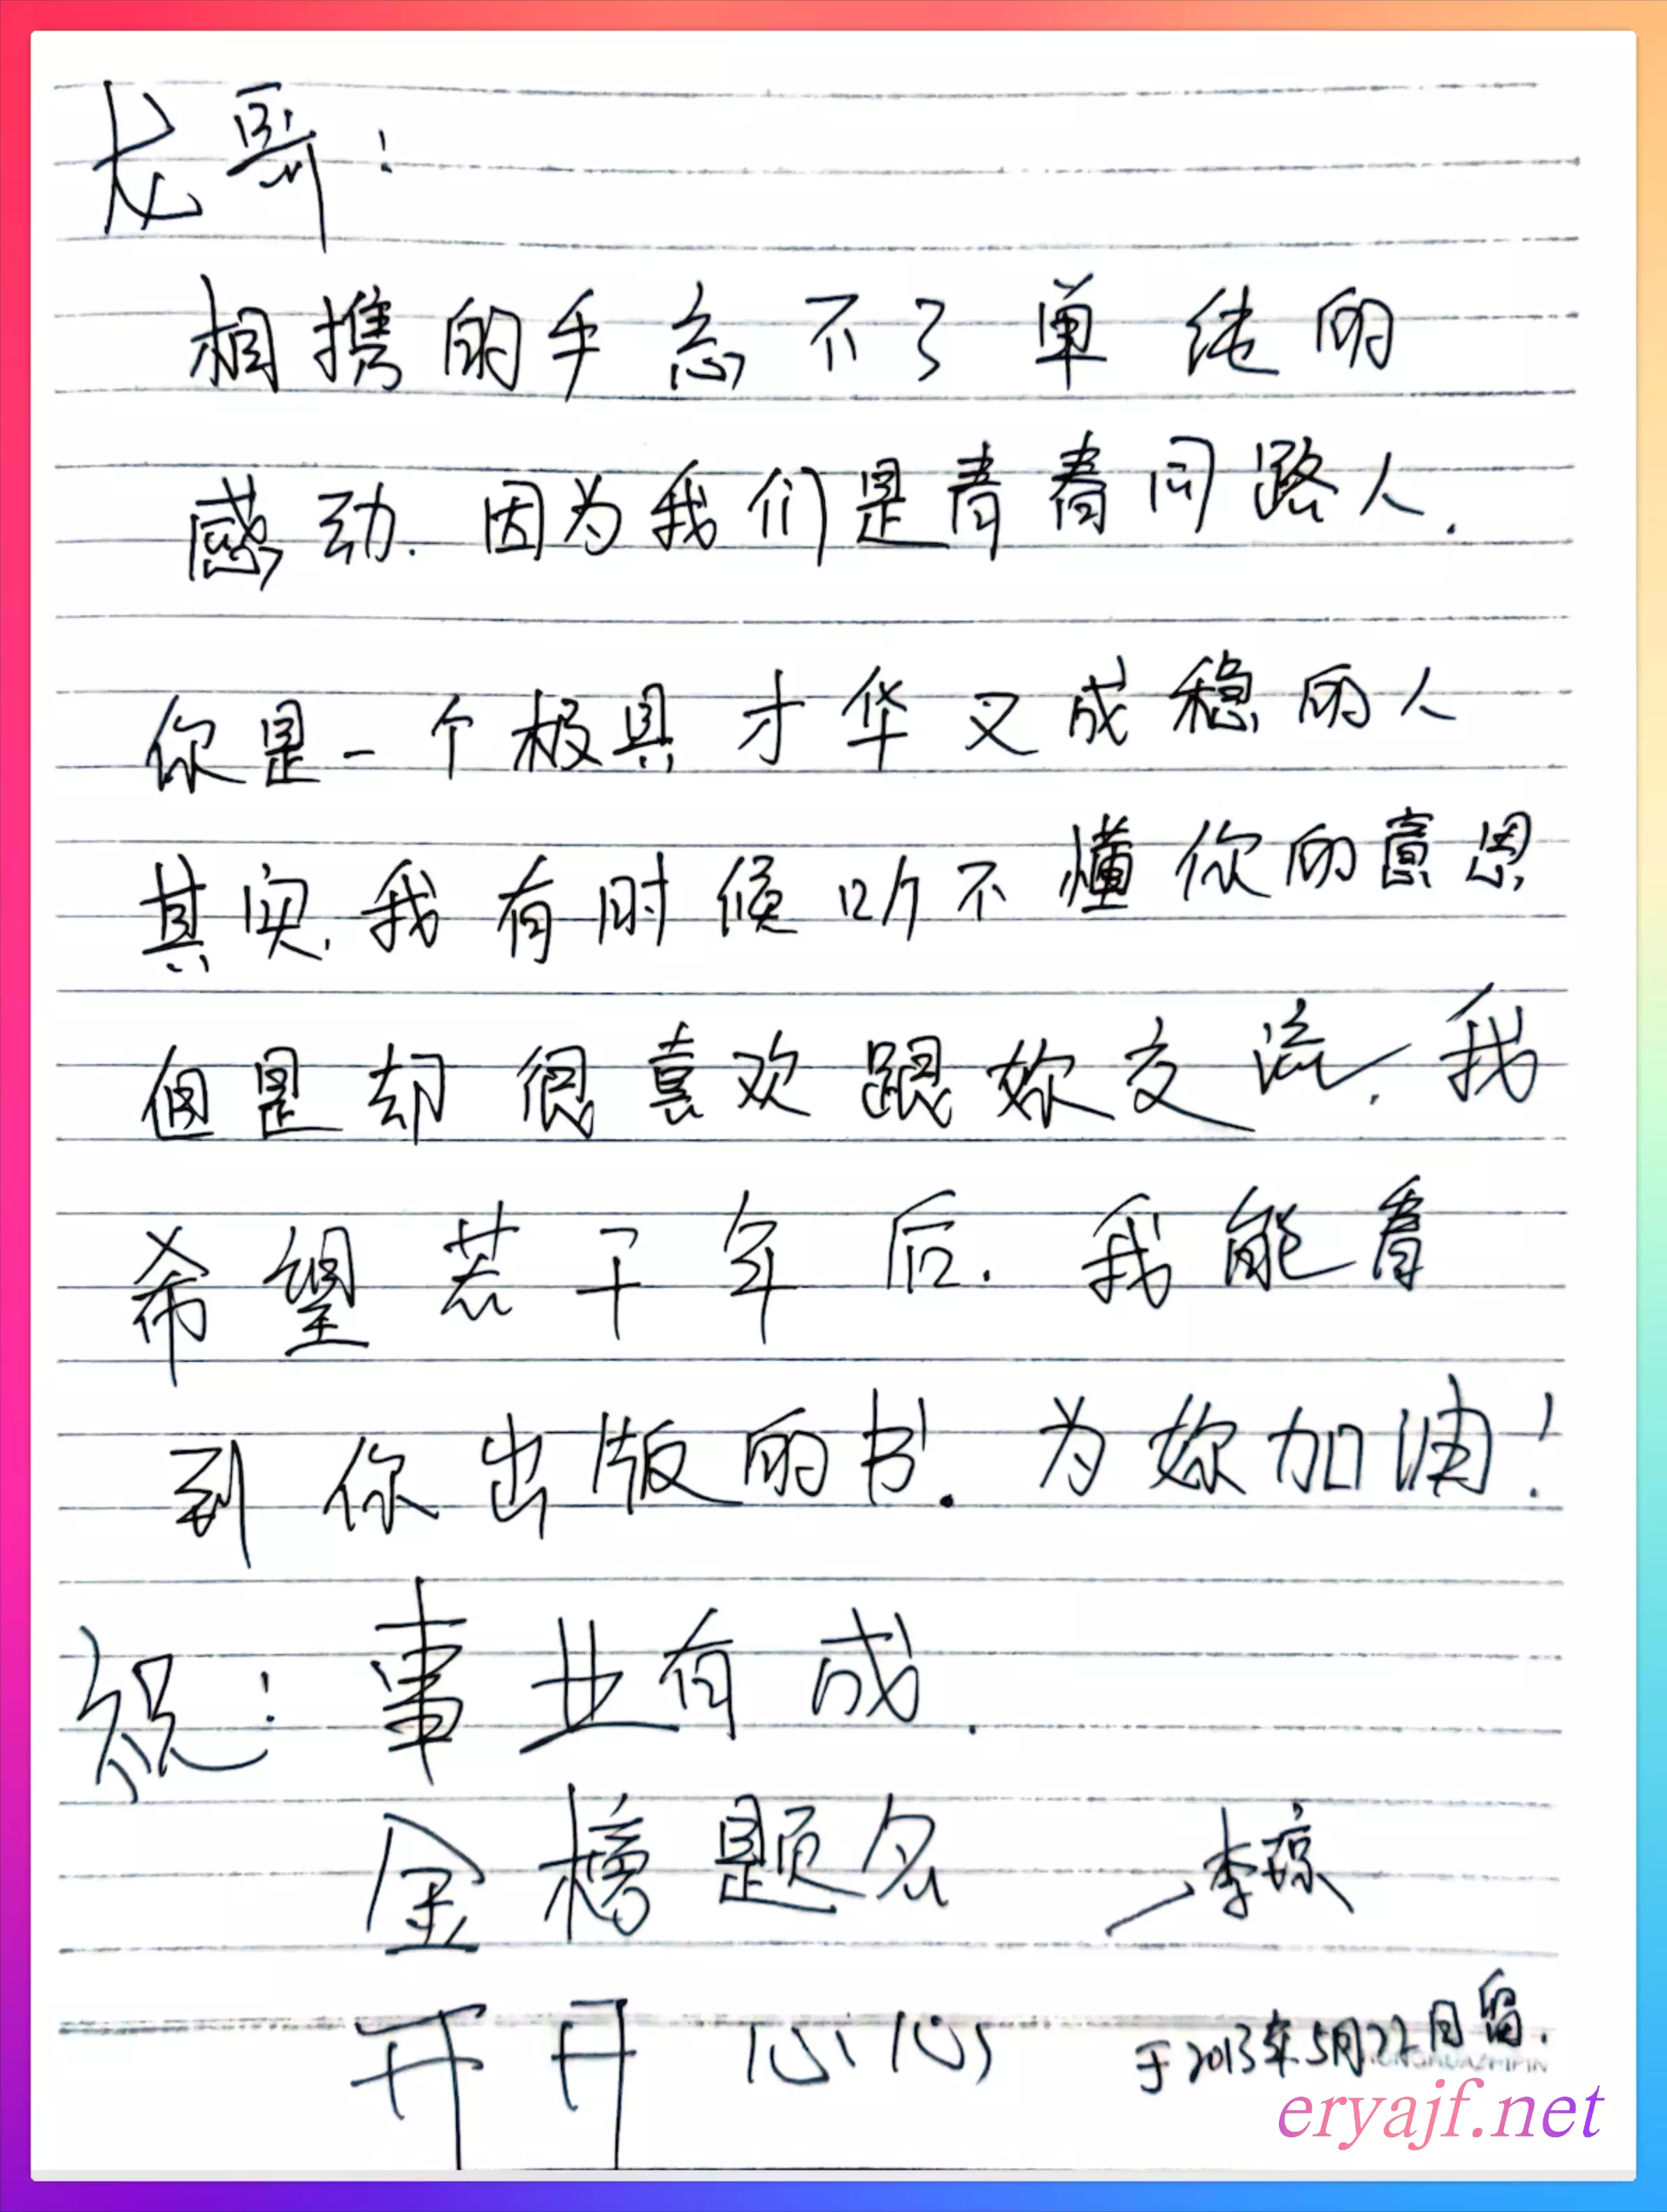 龙哥：
相携的手忘不了单纯的
感动.因为我们是青春同路人.
你是一个极具才华又成稳的人
其实,我有时候听不懂你的意思
但是却很喜欢跟妳交流,我
希望若干年后.我能看
到你出版的书.为妳加油！
祝：事业有成.
金榜题名
李琼
开开心心
于2013年5月22日留.
eryajf.net